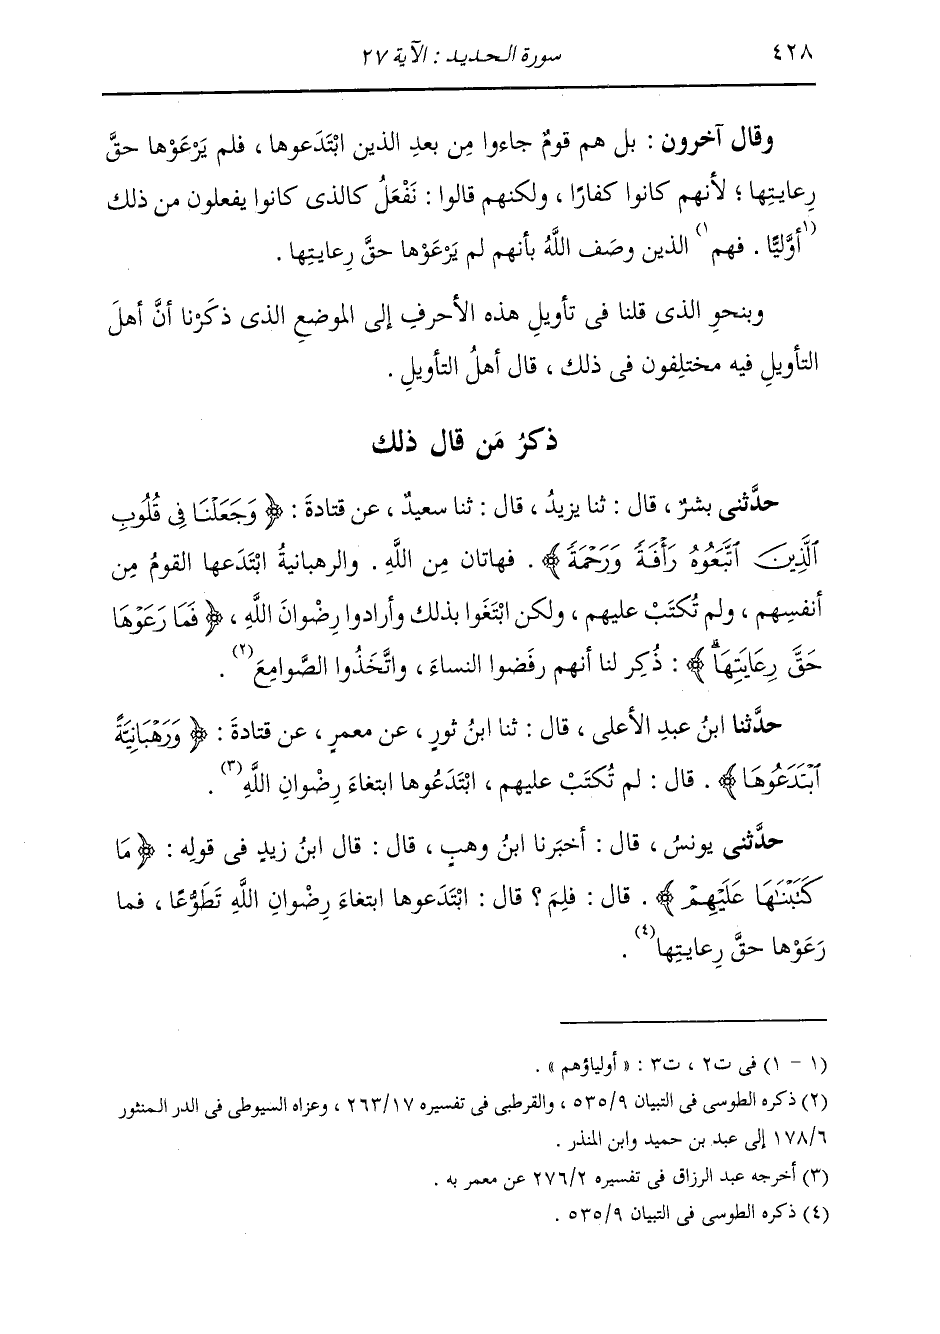 ٤٢٨
سورة الحديد : الآية ٢٧
وقال آخرون : بل هم قومٌ جاءوا مِن بعدِ الذين ابْتَدَعوها ، فلم يَرْعَوْها حقَّ
رِعايتِها ؛ لأنهم كانوا كفارًا ، ولكنهم قالوا : نَفْعَلُ كالذى كانوا يفعلون من ذلك
(١أوَّليًّا . فهم١) الذين وصَف اللَّهُ بأنهم لم يَرْعَوْها حقَّ رِعايتِها .
وبنحوِ الذى قلنا فى تأويلِ هذه الأحرفِ إلى الموضعِ الذى ذكَرْنا أنَّ أهلَ
التأويلِ فيه مختلِفون فى ذلك ، قال أهلُ التأويلِ .
ذكرُ مَن قال ذلك
حدَّثنى بشرٌ ، قال : ثنا يزيدُ ، قال : ثنا سعيدٌ ، عن قتادةَ : ﴿ وَجَعَلْنَا فِى قُلُوبِ
ٱلَّذِينَ ٱتَّبَعُوهُ رَأْفَةً وَرَحْمَةً ﴾ . فهاتان مِن اللَّهِ . والرهبانيةُ ابْتَدَعها القومُ مِن
أنفسِهم ، ولم تُكتَبْ عليهم ، ولكن ابْتَغَوا بذلك وأرادوا رِضْوانَ اللَّهِ ، ﴿ فَمَا رَعَوْهَا
حَقَّ رِعَايَتِهَاۖ ﴾ : ذُكِر لنا أنهم رفَضوا النساءَ ، واتَّخَذُوا الصَّوامِعَ(٢) .
حدَّثنا ابنُ عبدِ الأعلى ، قال : ثنا ابنُ ثورٍ ، عن معمرٍ ، عن قتادةَ : ﴿ وَرَهْبَانِيَّةً
ٱبْتَدَعُوهَا ﴾ . قال : لم تُكتَبْ عليهم ، ابْتَدَعُوها ابتغاءَ رِضْوانِ اللَّهِ(٣) .
حدَّثنى يونسُ ، قال : أخبَرنا ابنُ وهبٍ ، قال : قال ابنُ زيدٍ فى قولِه : ﴿ مَا
كَتَبْنَٰهَا عَلَيْهِمْ ﴾ . قال : فلِمَ ؟ قال : ابْتَدَعوها ابتغاءَ رِضْوانِ اللَّهِ تَطَوُّعًا ، فما
رَعَوْها حقَّ رِعايتِها(٤) .
(١ - ١) فى ت٢ ، ت٣ : « أولياؤهم » .
(٢) ذكره الطوسى فى التبيان ٥٣٥/٩ ، والقرطبى فى تفسيره ٢٦٣/١٧ ، وعزاه السيوطى فى الدر المنثور
١٧٨/٦ إلى عبد بن حميد وابن المنذر .
(٣) أخرجه عبد الرزاق فى تفسيره ٢٧٦/٢ عن معمر به .
(٤) ذكره الطوسى فى التبيان ٥٣٥/٩ .